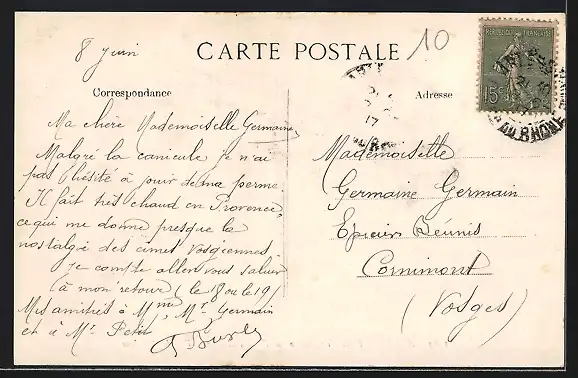 8 Juin
10
CARTE POSTALE
Correspondance
Adresse
REPUBLIQUE FRANÇAISE
15c
DU RHONE
17
Ma chère Mademoiselle Germaine
Malgré la canicule je n'ai
pas hésité à jouir de ma perme.
Il fait très chaud en Provence,
ce qui me donne presque la
nostalgie des cimes vosgiennes
Je compte aller vous saluer
à mon retour (le 18 ou le 19)
Mes amitiés à Mme, Mr. Germain
et à Mr. Petit
Mademoiselle
Germaine Germain
Epiciers Réunis
Cornimont
(Vosges)